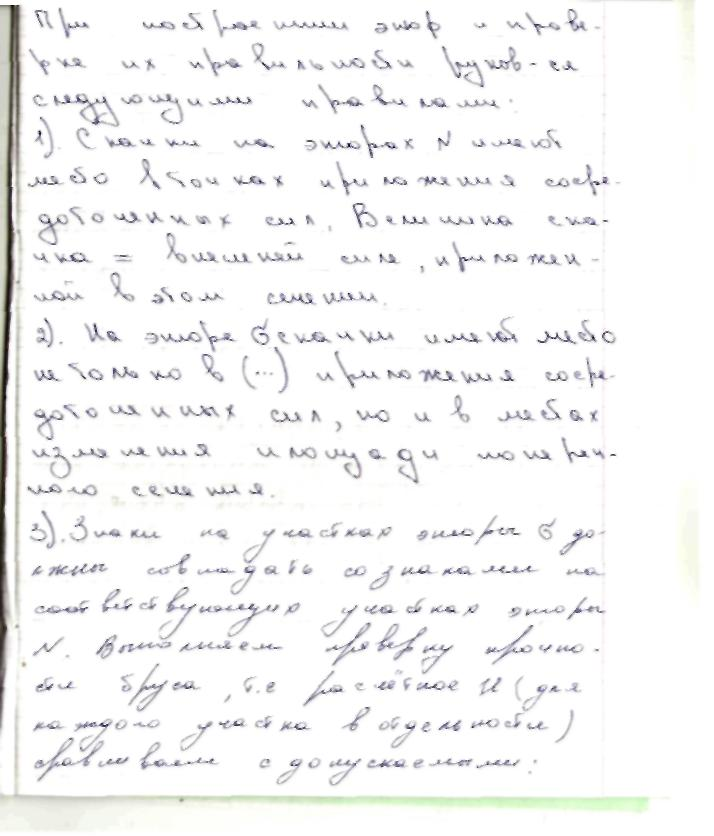 При построении эпюр и прове-
рке их правильности руков-ся
следующими правилами:
1). Скачки на эпюрах N имеют
место в точках приложения сосре-
доточенных сил. Величина ска-
чка = внешней силе, приложен-
ной в этом сечении.
2). На эпюре σ скачки имеют место
не только в (...) приложения сосре-
доточенных сил, но и в местах
изменения площади попереч-
ного сечения.
3). Знаки на участках эпюры σ до-
лжны совпадать со знаками на
соответствующих участках эпюры
N. Выполняем проверку прочно-
сти бруса, т.е расчётное И (для
каждого участка в отдельности)
сравниваем с допускаемыми: